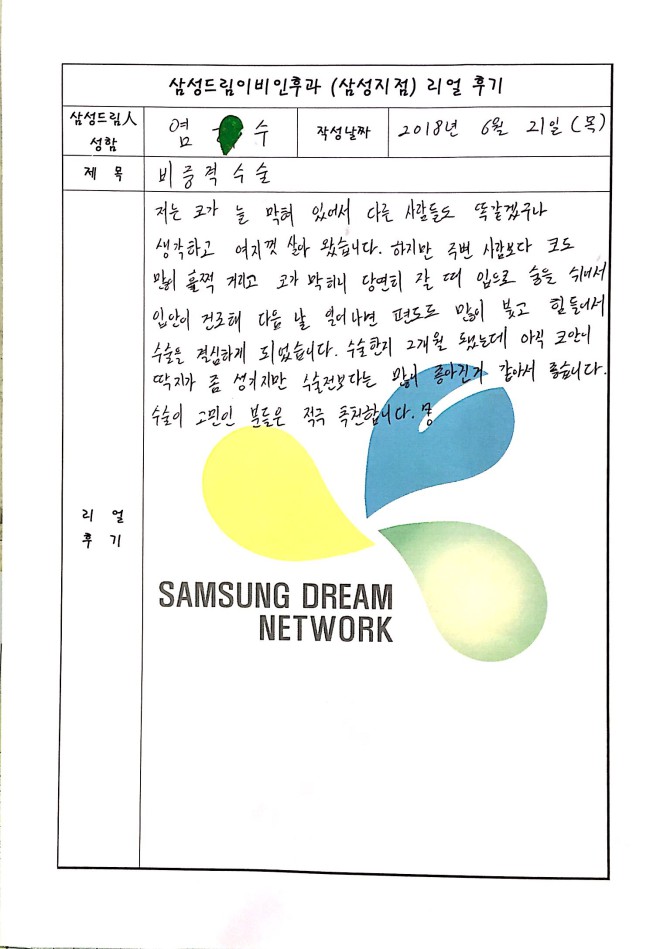 삼성드림이비인후과 (삼성지점) 리얼 후기
삼성드림人 성함
염 수
작성날짜
2018년 6월 21일 (목)
제 목
비중격수술
리 얼
후 기
저는 코가 늘 막혀 있어서 다른 사람들도 똑같겠구나
생각하고 여지껏 살아 왔습니다. 하지만 주변 사람보다 코도
많이 훌쩍 거리고 코가 막히니 당연히 잘 때 입으로 숨을 쉬어서
입안이 건조해 다음 날 일어나면 편도도 많이 붓고 힘들어서
수술을 결심하게 되었습니다. 수술한지 2개월 됐는데 아직 코안에
딱지가 좀 생기지만 수술전보다는 많이 좋아진거 같아서 좋습니다.
수술이 고민인 분들은 적극 추천합니다.
SAMSUNG DREAM
NETWORK